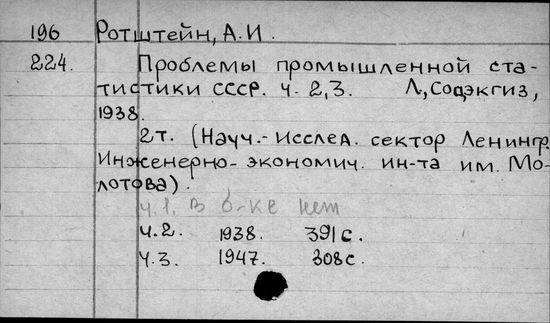 196 Ротштейн, А.И.
224. Проблемы промышленной ста-
тистики СССР. ч. 2,3. Л, Соцэкгиз,
1938.
2т. (Науч.-Исслед. сектор Ленингр.
Инженерно-экономич. ин-та им. Мо-
лотова).
ч.1. В б-ке нет
ч.2. 1938. 391с.
ч.3. 1947. 308с.